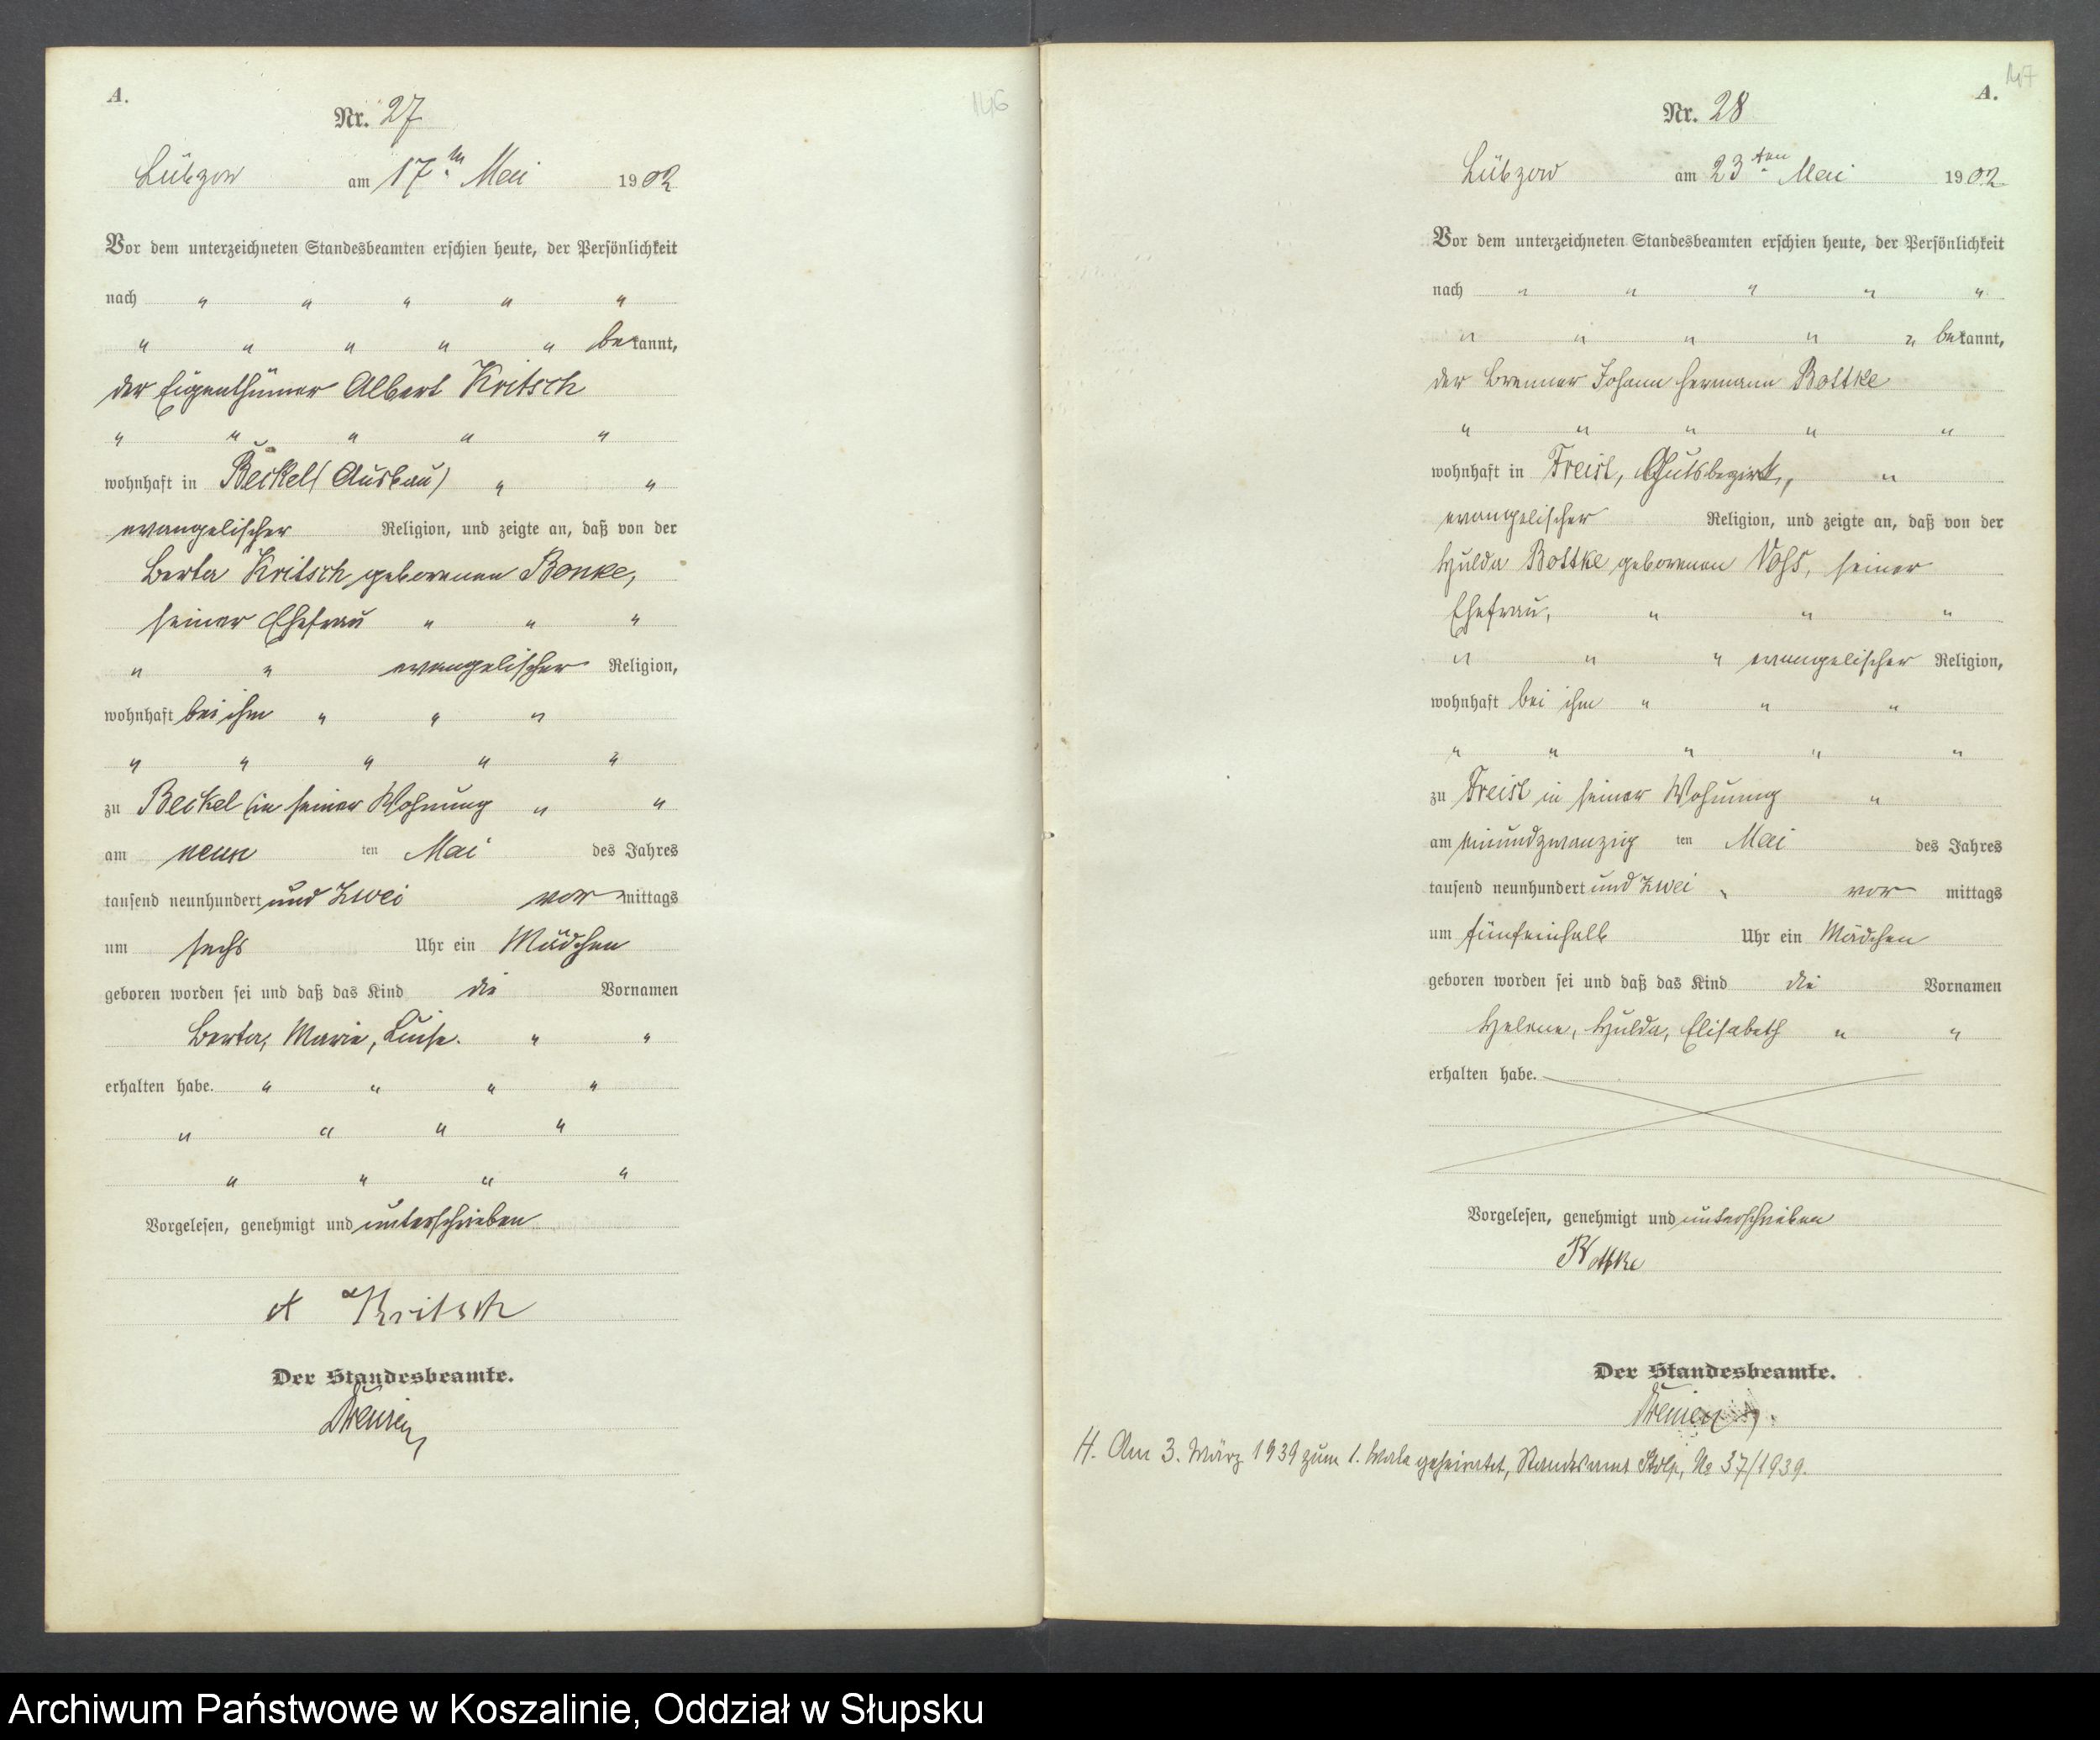 A.
146
Nr. 27
Lübzow am 17ten Mai 1902
Vor dem unterzeichneten Standesbeamten erschien heute, der Persönlichkeit
nach " " " " "
" " " " " bekannt,
der Eigenthümer Albert Kritsch
" " " " "
wohnhaft in Beckel (Ausbau) " "
evangelischer Religion, und zeigte an, daß von der
Berta Kritsch geborenen Bonke,
seiner Ehefrau " " "
" " evangelischer Religion,
wohnhaft bei ihm " " "
" " " " "
zu Beckel in seiner Wohnung " "
am neun ten Mai des Jahres
tausend neunhundert und zwei vor mittags
um sechs Uhr ein Mädchen
geboren worden sei und daß das Kind die Vornamen
Berta, Marie, Luise. " "
erhalten habe. " " " "
" " " "
" " " "
Vorgelesen, genehmigt und unterschrieben
A Kritsch
Der Standesbeamte.
147
A.
Nr. 28
Lübzow am 23ten Mai 1902
Vor dem unterzeichneten Standesbeamten erschien heute, der Persönlichkeit
nach " " " " "
" " " " " bekannt,
der Brenner Johann Hermann Bottke
" " " " "
wohnhaft in Freist, Gutsbezirk, "
evangelischer Religion, und zeigte an, daß von der
Hulda Bottke geborenen Voß, seiner
Ehefrau, " " "
" " " evangelischer Religion,
wohnhaft bei ihm " " "
" " " " "
zu Freist in seiner Wohnung "
am einundzwanzig ten Mai des Jahres
tausend neunhundert und zwei " vor mittags
um fünfeinhalb Uhr ein Mädchen
geboren worden sei und daß das Kind die Vornamen
Helene, Hulda, Elisabeth " "
erhalten habe.
Vorgelesen, genehmigt und unterschrieben
Bottke
Der Standesbeamte.
H. Am 3. März 1939 zum 1. Male geheiratet, Standesamt Stolp, No 37/1939.
Archiwum Państwowe w Koszalinie, Oddział w Słupsku